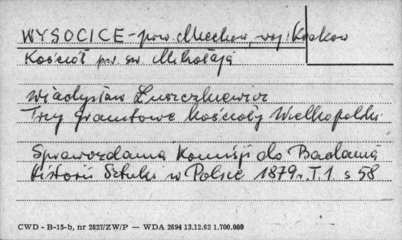 WYSOCICE - pow. Miechów, woj. Krakow
Kościół pw. św. Mikołaja
Władysław Łuszczkiewicz
Trzy granitowe kościoły Wielkopolski
Sprawozdania Komisji do Badania
Historii Sztuki w Polsce 1879 r. T. 1 s 58
CWD - B-15-b, nr 2827/ZW/P — WDA 2694 13.12.62 1.700.000